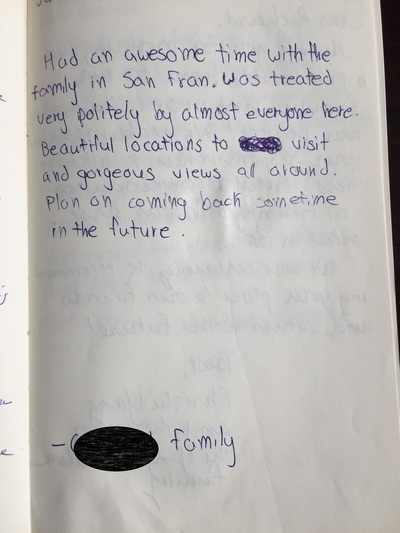 Had an awesome time with the
family in San Fran. Was treated
very politely by almost everyone here.
Beautiful locations to visit
and gorgeous views all around.
Plan on coming back sometime
in the future.
- family